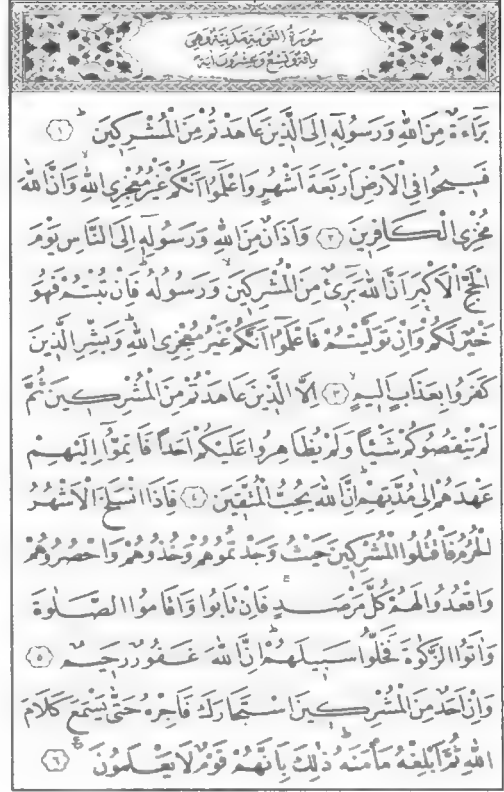 سُورَةُ التَّوْبَةِ مَدَنِيَّةٌ وَهِيَ
مِائَةٌ وَتِسْعٌ وَعِشْرُونَ اٰيَةً
بَرَٓاءَةٌ مِنَ اللّٰهِ وَرَسُولِهِٓ اِلَى الَّذ۪ينَ عَاهَدْتُمْ مِنَ الْمُشْرِك۪ينَۜ ﴿١﴾
فَس۪يحُوا فِي الْاَرْضِ اَرْبَعَةَ اَشْهُرٍ وَاعْلَمُٓوا اَنَّكُمْ غَيْرُ مُعْجِزِي اللّٰهِۙ وَاَنَّ اللّٰهَ
مُخْزِي الْكَافِر۪ينَ ﴿٢﴾ وَاَذَانٌ مِنَ اللّٰهِ وَرَسُولِهِٓ اِلَى النَّاسِ يَوْمَ
الْحَجِّ الْاَكْبَرِ اَنَّ اللّٰهَ بَر۪ٓيءٌ مِنَ الْمُشْرِك۪ينَۙ وَرَسُولُهُۜ فَاِنْ تُبْتُمْ فَهُوَ
خَيْرٌ لَكُمْۚ وَاِنْ تَوَلَّيْتُمْ فَاعْلَمُٓوا اَنَّكُمْ غَيْرُ مُعْجِزِي اللّٰهِۜ وَبَشِّرِ الَّذ۪ينَ
كَفَرُوا بِعَذَابٍ اَل۪يمٍۙ ﴿٣﴾ اِلَّا الَّذ۪ينَ عَاهَدْتُمْ مِنَ الْمُشْرِك۪ينَ ثُمَّ
لَمْ يَنْقُصُوكُمْ شَيْـًٔا وَلَمْ يُظَاهِرُوا عَلَيْكُمْ اَحَدًا فَاَتِمُّٓوا اِلَيْهِمْ
عَهْدَهُمْ اِلٰى مُدَّتِهِمْۜ اِنَّ اللّٰهَ يُحِبُّ الْمُتَّق۪ينَ ﴿٤﴾ فَاِذَا انْسَلَخَ الْاَشْهُرُ
الْحُرُمُ فَاقْتُلُوا الْمُشْرِك۪ينَ حَيْثُ وَجَدْتُمُوهُمْ وَخُذُوهُمْ وَاحْصُرُوهُمْ
وَاقْعُدُوا لَهُمْ كُلَّ مَرْصَدٍۚ فَاِنْ تَابُوا وَاَقَامُوا الصَّلٰوةَ
وَاٰتَوُا الزَّكٰوةَ فَخَلُّوا سَب۪يلَهُمْۜ اِنَّ اللّٰهَ غَفُورٌ رَح۪يمٌ ﴿٥﴾
وَاِنْ اَحَدٌ مِنَ الْمُشْرِك۪ينَ اسْتَجَارَكَ فَاَجِرْهُ حَتّٰى يَسْمَعَ كَلَامَ
اللّٰهِ ثُمَّ اَبْلِغْهُ مَأْمَنَهُۜ ذٰلِكَ بِاَنَّهُمْ قَوْمٌ لَا يَعْلَمُونَ۟ ﴿٦﴾